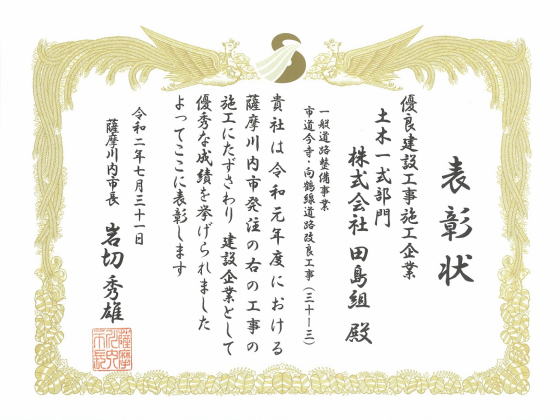 表彰状
優良建設工事施工企業
土木一式部門
株式会社 田島組 殿
一般道路整備事業
市道今寺・向鶴線道路改良工事(三十ー三)
貴社は令和元年度における
薩摩川内市発注の右の工事の
施工にたずさわり 建設企業として
優秀な成績を挙げられました
よってここに表彰します
令和二年七月三十一日
薩摩川内市長 岩切秀雄